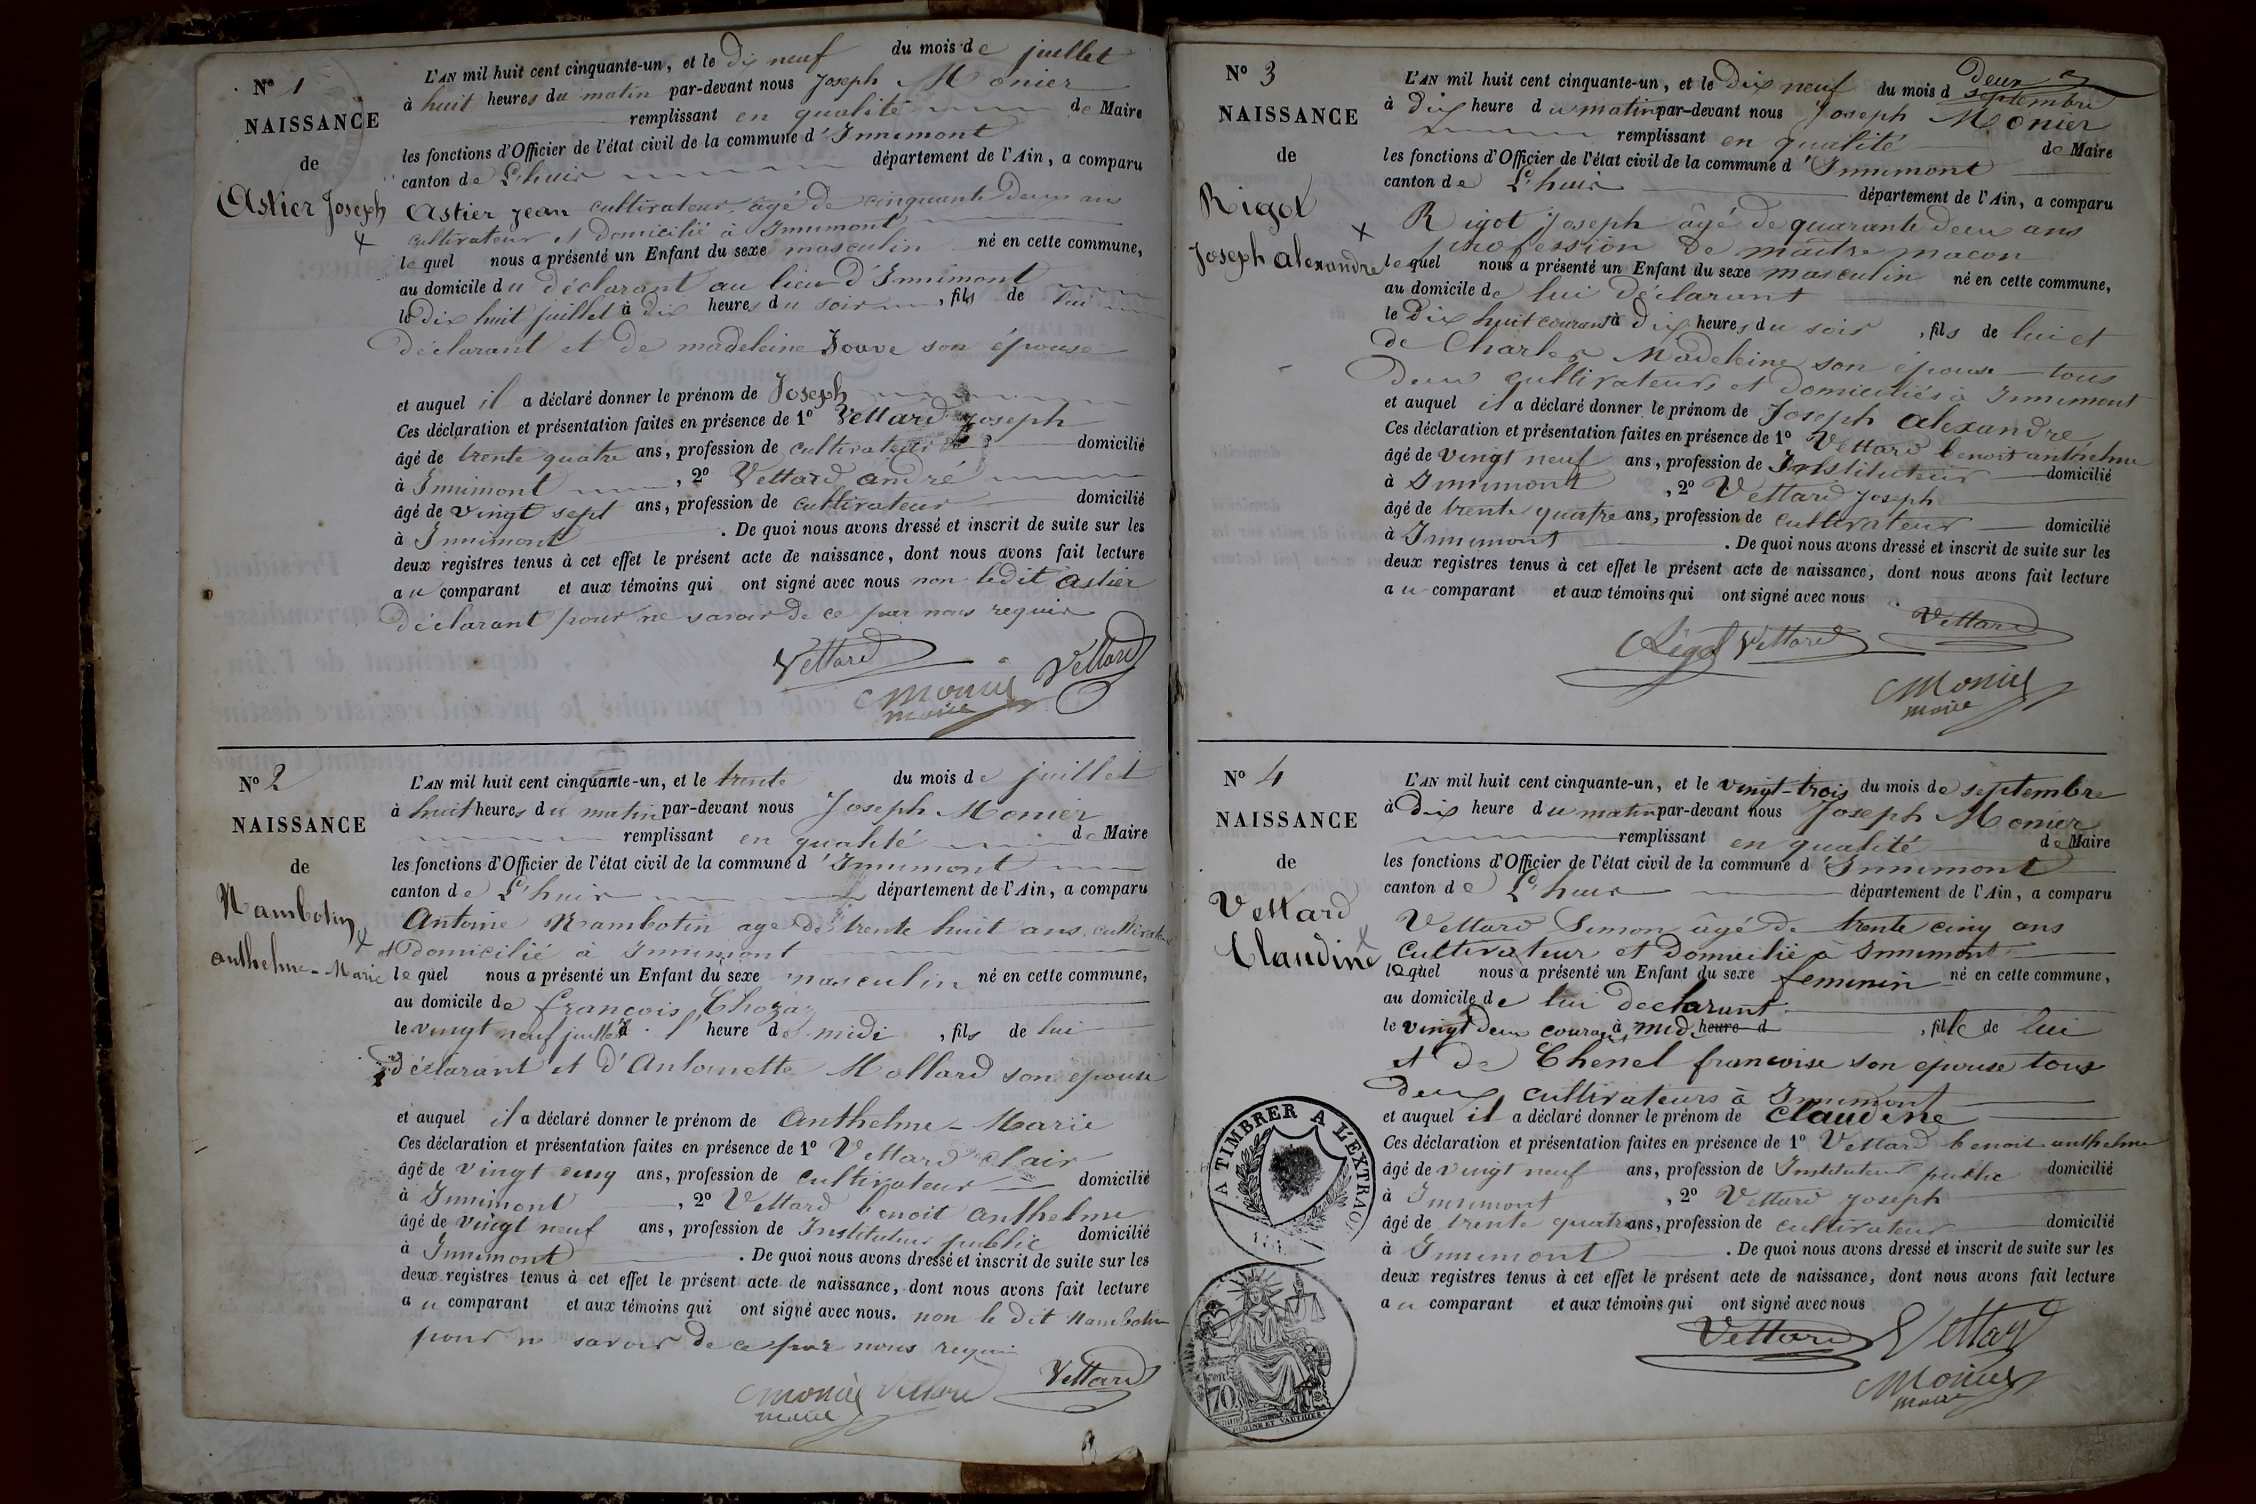 N° 1
NAISSANCE
de
Astier Joseph
L'AN mil huit cent cinquante-un, et le dix neuf du mois de juillet
à huit heures du matin par-devant nous Joseph Monier
remplissant en qualité de Maire
les fonctions d'Officier de l'état civil de la commune d'Innimont
canton de L'huis département de l'Ain, a comparu
Astier jean cultivateur âgé de cinquante deux ans
cultivateur et domicilié à Innimont
lequel nous a présenté un Enfant du sexe masculin né en cette commune,
au domicile du déclarant au lieu d'Innimont
le dix huit juillet à dix heures du soir, fils de lui
déclarant et de madeleine Jouve son épouse
et auquel il a déclaré donner le prénom de Joseph
Ces déclaration et présentation faites en présence de 1° Vettard joseph
âgé de trente quatre ans, profession de cultivateur domicilié
à Innimont, 2° Vettard andré
âgé de vingt sept ans, profession de cultivateur domicilié
à Innimont. De quoi nous avons dressé et inscrit de suite sur les
deux registres tenus à cet effet le présent acte de naissance, dont nous avons fait lecture
au comparant et aux témoins qui ont signé avec nous non ledit astier
déclarant pour ne savoir de ce par nous requis
Vettard Vettard
Monier
maire
N° 2
NAISSANCE
de
Nambotin
anthelme-Marie
L'AN mil huit cent cinquante-un, et le trente du mois de juillet
à huit heures du matin par-devant nous Joseph Monier
remplissant en qualité de Maire
les fonctions d'Officier de l'état civil de la commune d'Innimont
canton de L'huis département de l'Ain, a comparu
Antoine Nambotin age de trente huit ans cultivateur
et domicilié à Innimont
lequel nous a présenté un Enfant du sexe masculin né en cette commune,
au domicile de françois Choza
le vingt neuf juillet à l'heure de midi, fils de lui
déclarant et d'Antoinette Mollard son epouse
et auquel il a déclaré donner le prénom de Anthelme-Marie
Ces déclaration et présentation faites en présence de 1° Vettard clair
âgé de vingt cinq ans, profession de cultivateur domicilié
à Innimont, 2° Vettard benoit anthelme
âgé de vingt neuf ans, profession de Instituteur public domicilié
à Innimont. De quoi nous avons dressé et inscrit de suite sur les
deux registres tenus à cet effet le présent acte de naissance, dont nous avons fait lecture
au comparant et aux témoins qui ont signé avec nous. non le dit Nambotin
pour ne savoir de ce par nous requi
Monier Vettard Vettard
maire
N° 3
NAISSANCE
de
Rigot
Joseph alexandre
deux
L'AN mil huit cent cinquante-un, et le dix neuf du mois d septembre
à dix heure du matin par-devant nous Joseph Monier
remplissant en qualité de Maire
les fonctions d'Officier de l'état civil de la commune d'Innimont
canton de L'huis département de l'Ain, a comparu
Rigot Joseph âgé de quarante deux ans
profession de maitre macon
lequel nous a présenté un Enfant du sexe masculin né en cette commune,
au domicile de lui déclarant
le dix huit courant à dix heures du soir, fils de lui et
de Charles Madeleine son épouse tous
deux cultivateurs et domiciliés à Innimont
et auquel il a déclaré donner le prénom de Joseph alexandre
Ces déclaration et présentation faites en présence de 1° Vettard benoit anthelme
âgé de vingt neuf ans, profession de Instituteur domicilié
à Innimont, 2° Vettard Joseph
âgé de trente quatre ans, profession de cultivateur domicilié
à Innimont. De quoi nous avons dressé et inscrit de suite sur les
deux registres tenus à cet effet le présent acte de naissance, dont nous avons fait lecture
au comparant et aux témoins qui ont signé avec nous
Rigot Vettard Vettard
Monier
maire
N° 4
NAISSANCE
de
Vettard
Claudine
L'AN mil huit cent cinquante-un, et le vingt-trois du mois de septembre
à dix heure du matin par-devant nous Joseph Monier
remplissant en qualité de Maire
les fonctions d'Officier de l'état civil de la commune d'Innimont
canton de L'huis département de l'Ain, a comparu
Vettard Simon âgé de trente cinq ans
cultivateur et domicilié à Innimont
lequel nous a présenté un Enfant du sexe feminin né en cette commune,
au domicile de lui declarant
le vingt deux courant à midi heure d, fille de lui
et de Chenel francoise son epouse tous
deux cultivateurs à Innimont
et auquel il a déclaré donner le prénom de claudine
Ces déclaration et présentation faites en présence de 1° Vettard benoit anthelme
âgé de vingt neuf ans, profession de Instituteur public domicilié
à Innimont, 2° Vettard Joseph
âgé de trente quatre ans, profession de cultivateur domicilié
à Innimont. De quoi nous avons dressé et inscrit de suite sur les
deux registres tenus à cet effet le présent acte de naissance, dont nous avons fait lecture
au comparant et aux témoins qui ont signé avec nous
Vettard Vettard
Monier
maire
A TIMBRER A L'EXTRAO
70